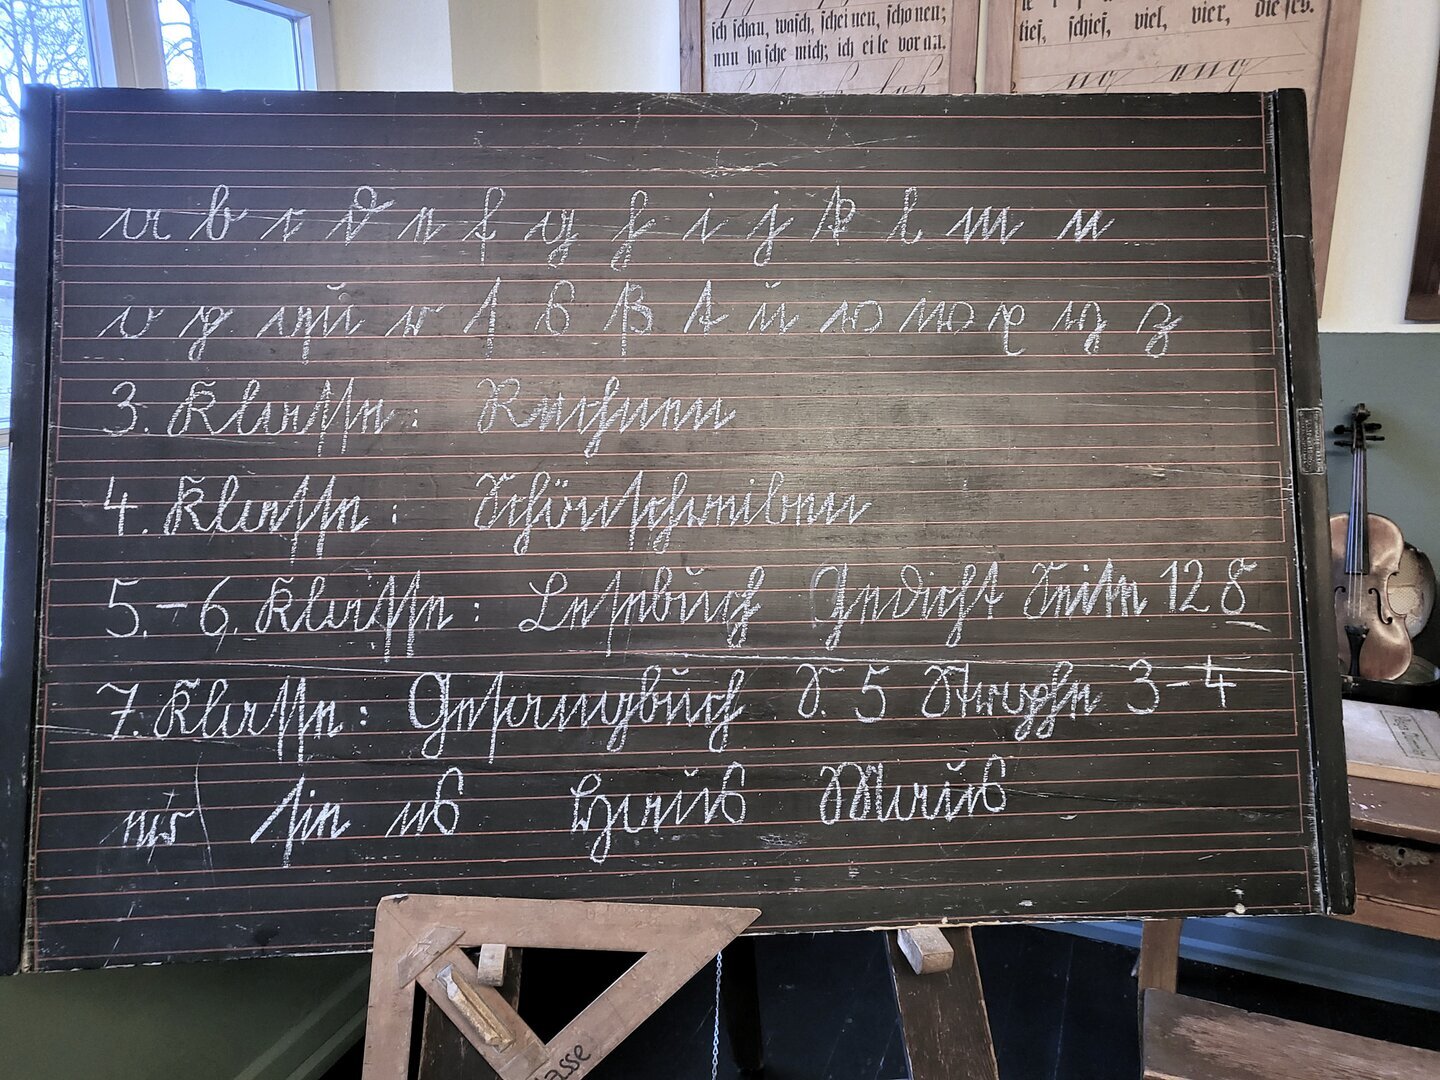 ſch ſchau, waſch, ſcheinen, ſchonen;
nun haſche mich; ich eile voran.
tief, ſchief, viel, vier, dieſes.
a b c d e f g h i j k l m n
o p qu r ſ s ß t u v w x y z
3. Klaſſe: Rechnen
4. Klaſſe: Schönſchreiben
5.-6. Klaſſe: Leſebuch Gedicht Seite 128
7. Klaſſe: Geſangbuch S. 5 Strophe 3-4
ſie es Haus Maus